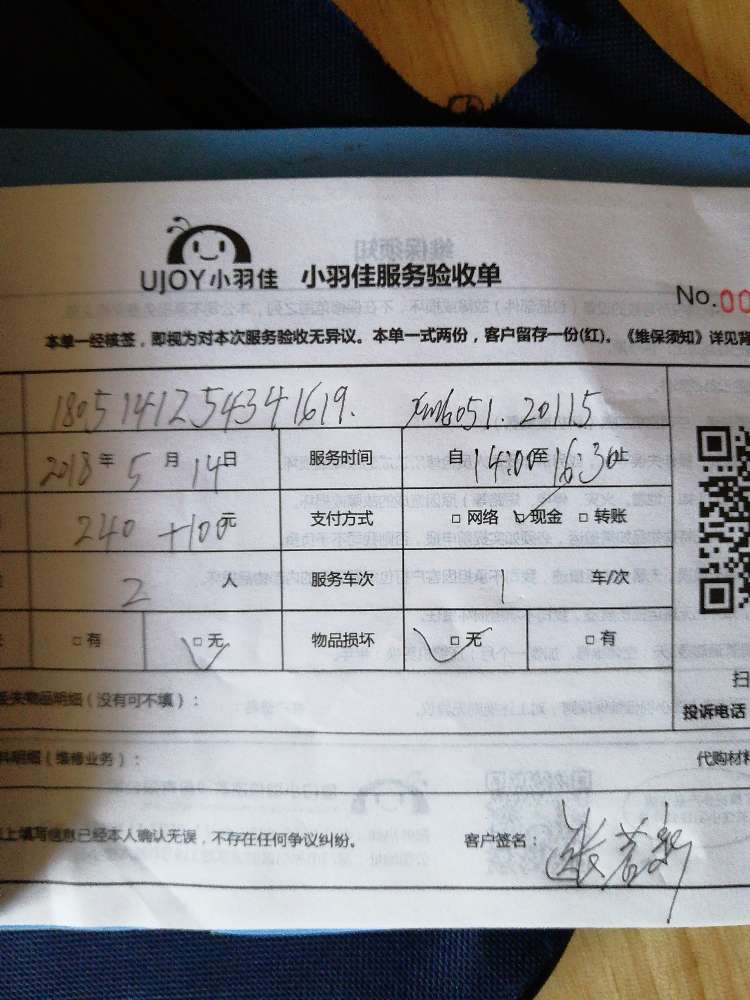 UJOY小羽佳 小羽佳服务验收单
No.00
本单一经核签，即视为对本次服务验收无异议。本单一式两份，客户留存一份(红)。《维保须知》详见背
1805141254341619. xm6051.20115
2018年5月14日 服务时间 自14:00至16:30止
240+100元 支付方式 □网络 □现金 □转账
2人 服务车次 1 车/次
□有 □无 物品损坏 □无 □有
失物品明细（没有可不填）：
扫
投诉电话
料明细（维修业务）： 代购材料
上填写信息已经本人确认无误，不存在任何争议纠纷。 客户签名：